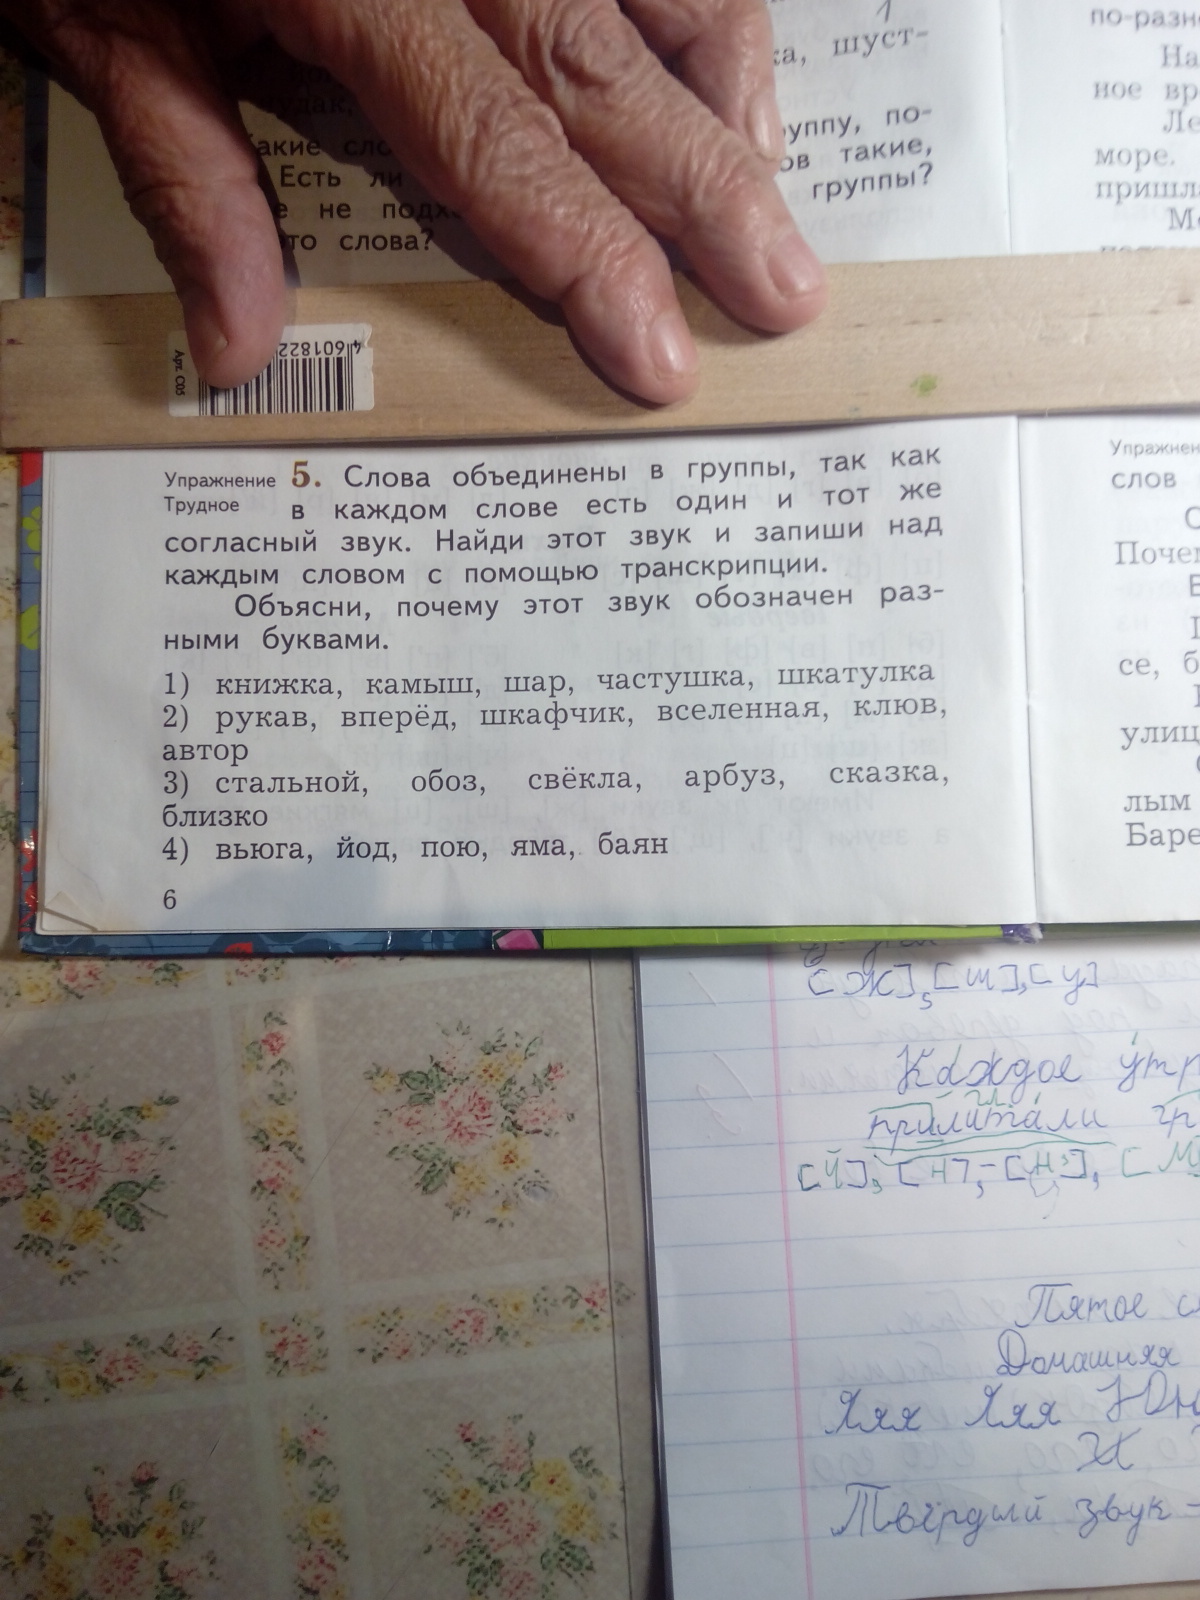 1
шуст-
чудак,
руппу, по-
такие,
Есть ли
группы?
не
слова?
4601822
Арт. С05
по-разн
На
ное вр
Ле
море.
пришла
Упражнение 5. Слова объединены в группы, так как
Трудное в каждом слове есть один и тот же
согласный звук. Найди этот звук и запиши над
каждым словом с помощью транскрипции.
Объясни, почему этот звук обозначен раз-
ными буквами.
1) книжка, камыш, шар, частушка, шкатулка
2) рукав, вперёд, шкафчик, вселенная, клюв,
автор
3) стальной, обоз, свёкла, арбуз, сказка,
близко
4) вьюга, йод, пою, яма, баян
6
Упражнен
слов
Почем
се, б
улиц
лым
Баре
[ж], [ш], [ц]
Каждое утр
гл.
прилитали гр
[й], [н], - [н'], [м
Пятое с
Домашняя
Яяя Яяя Юю
Твёрдый звук -